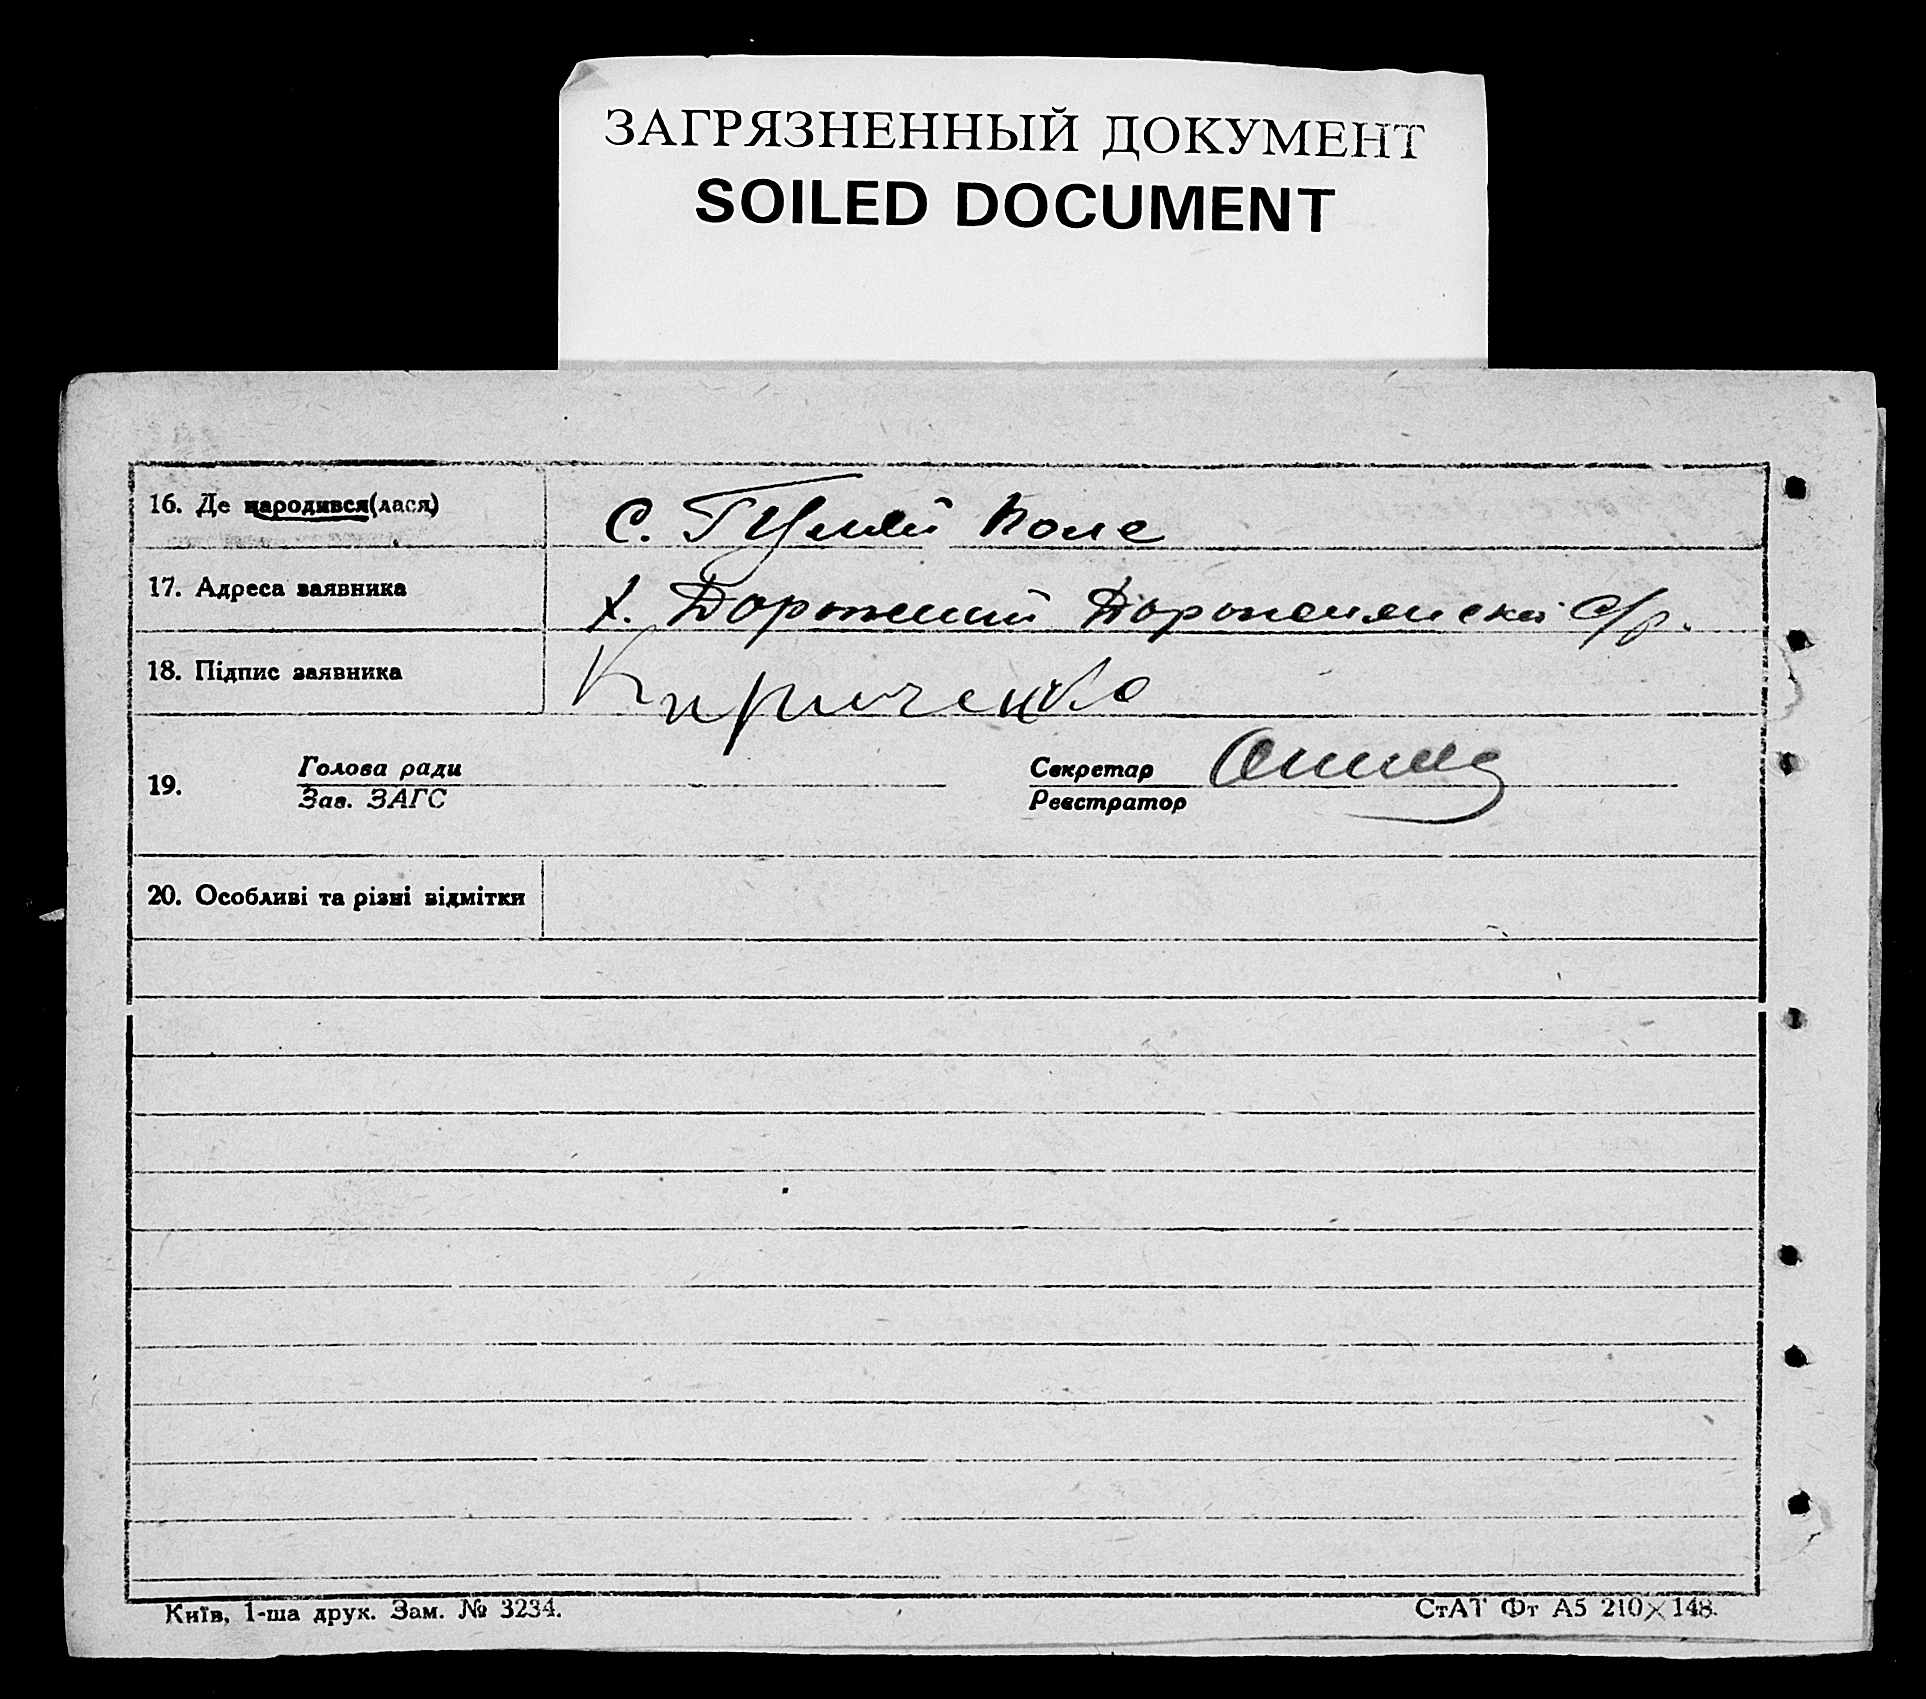 ЗАГРЯЗНЕННЫЙ ДОКУМЕНТ
SOILED DOCUMENT
16. Де народився(лася) С. Гуляй Поле
17. Адреса заявника х. Дорожний Дорожнянской с/р.
18. Підпис заявника Кириченко
19. Голова ради Секретар
Зав. ЗАГС Реєстратор
20. Особливі та різні відмітки
Київ, 1-ша друк. Зам. № 3234.
СтАТ Фт А5 210×148.